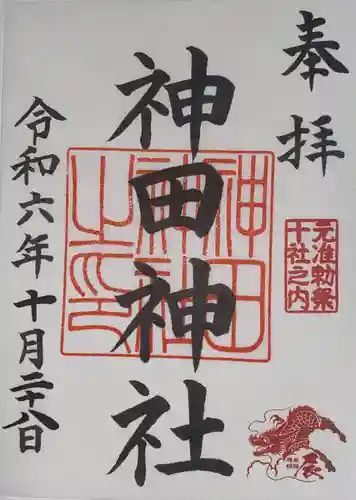 奉拝
元准勅祭
十社之内
神田神社
神田
神社
之印
辰
令和六年十月二十八日